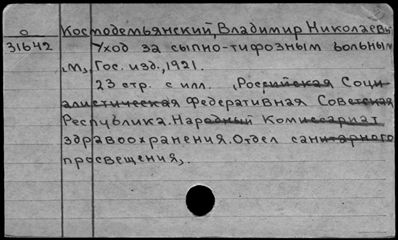 о Космодемьянский, Владимир Николаевич
31642 Уход за сыпно-тифозным больным
,М., Гос. изд., 1921.
23 стр. с илл. ,Российская Соци-
алистическая Федеративная Советская
Республика. Народный Комиссариат
здравоохранения. Отдел санитарного
просвещения,.